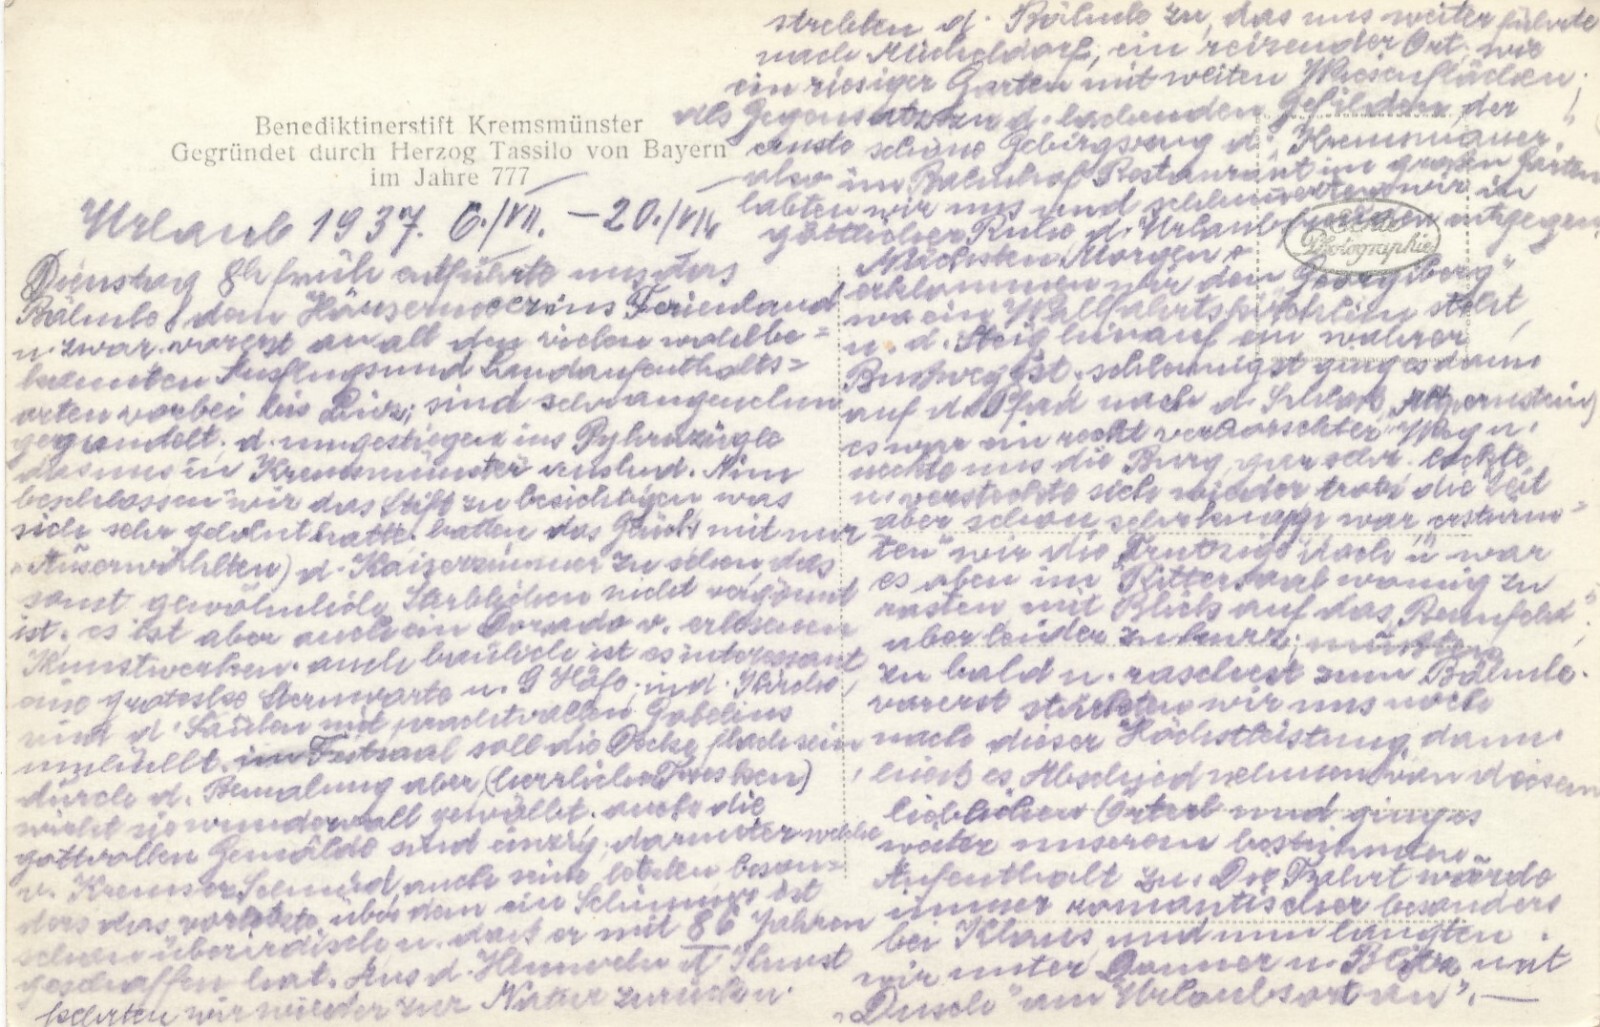 Benediktinerstift Kremsmünster
Gegründet durch Herzog Tassilo von Bayern
im Jahre 777
Urlaub 1937. 6./VII. – 20./VII.
Dienstag 8h früh entführte uns das
Bähnle d. dem Häusermeer ins Ferienland
u. zwar vorerst an all den vielen wohlbe=
kannten Ausflugs und Landaufenthalts=
orten vorbei bis Linz; sind sehr angenehm
gegondelt. d. umgestiegen ins Pyhrnzügle
das uns in Kremsmünster auslud. Nun
beschlossen wir das Stift zu besichtigen was
sich sehr gelohnt hatte. hatten das Glück mit nur
"Auserwählten) d. Kaiserzimmer zu sehen das
sonst gewöhnliche Sterblichen nicht vergönnt
ist. es ist aber auch ein Dorado v. erlesenen
Kunstwerken. auch baulich ist es interessant
eine groteske Sternwarte u. 9 Höfe. in d. Kirche
sind d. Säulen mit prachtvollen Gobelins
umhüllt. im Festsaal soll die Decke flach sein
durch d. Bemalung aber (herrliche Fresken)
wirkt sie wundervoll gewölbt. auch die
gottvollen Gemälde sind einzig, darunter welche
v. Kremser Schmid, auch sein letzten beson=
ders das vorletzte über dem ein Schimmer ist
schon überirdisch u. das er mit 86 Jahren
geschaffen hat. Aus d. Himmeln d. Kunst
kehrten wir wieder zur Natur zurück u.
strebten d. Bähnle zu, das uns weiter führte
nach Micheldorf, ein reizender Ort, wie
ein riesiger Garten mit weiten Wiesenflächen;
als Gegensatz zu d. lachenden Gefilden der
ernste schöne Gebirgszug d. Kremsmauer!
also im Bahnhof Restaurant im großen Garten
labten wir uns und schlummerten wir in
göttlicher Ruhe d. Urlaubsmorgen entgegen.
Echte
Photographie
Nächsten Morgen
erklommen wir den "Georgiberg"
wo ein Wallfahrtskirchlein steht,
u. d. Steig hinauf ein wahrer
Bussweg ist, schleunigst ging es dann
auf d. Pfad nach d. Schloß, Altpernstein)
es war ein recht verborschter Weg u.
neckte uns die Burg gar sehr. lockte
u. versteckte sich wieder trotz die Zeit
aber schon sehr knapp war, erstürm=
ten" wir die "Trutzige" doch u. war
es oben im Rittersaal wonnig zu
rasten mit Blick auf das
aber leider zu kurz; mußten
zu bald u. raschest zum Bähnle.
vorerst stärkten wir uns noch
nach dieser Höchstleistung, dann
hieß es Abschied nehmen von diesem
lieblichen Örterl und ging es
weiter unserem bestimmten
Aufenthalt zu. Die Fahrt würde
immer romantischer besonders
bei Klaus, und nun langten
wir unter Donner u. Blitz mit
"Dusche" am Urlaubsort an". —